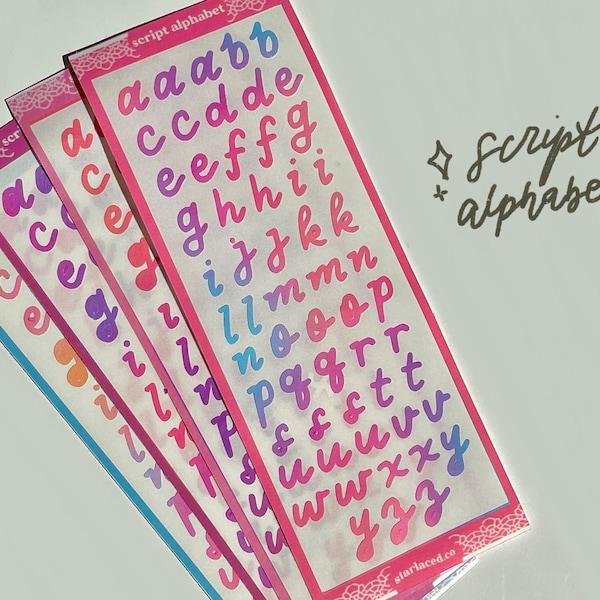 script alphabet
a a a b b
c c d d e
e e f f g
g h h i i
i j j k k
l l m m n
n o o o p
p q q r r
s s s t t
u u u v v
w w x x y
y z z
starlaced.co
script
alphabe